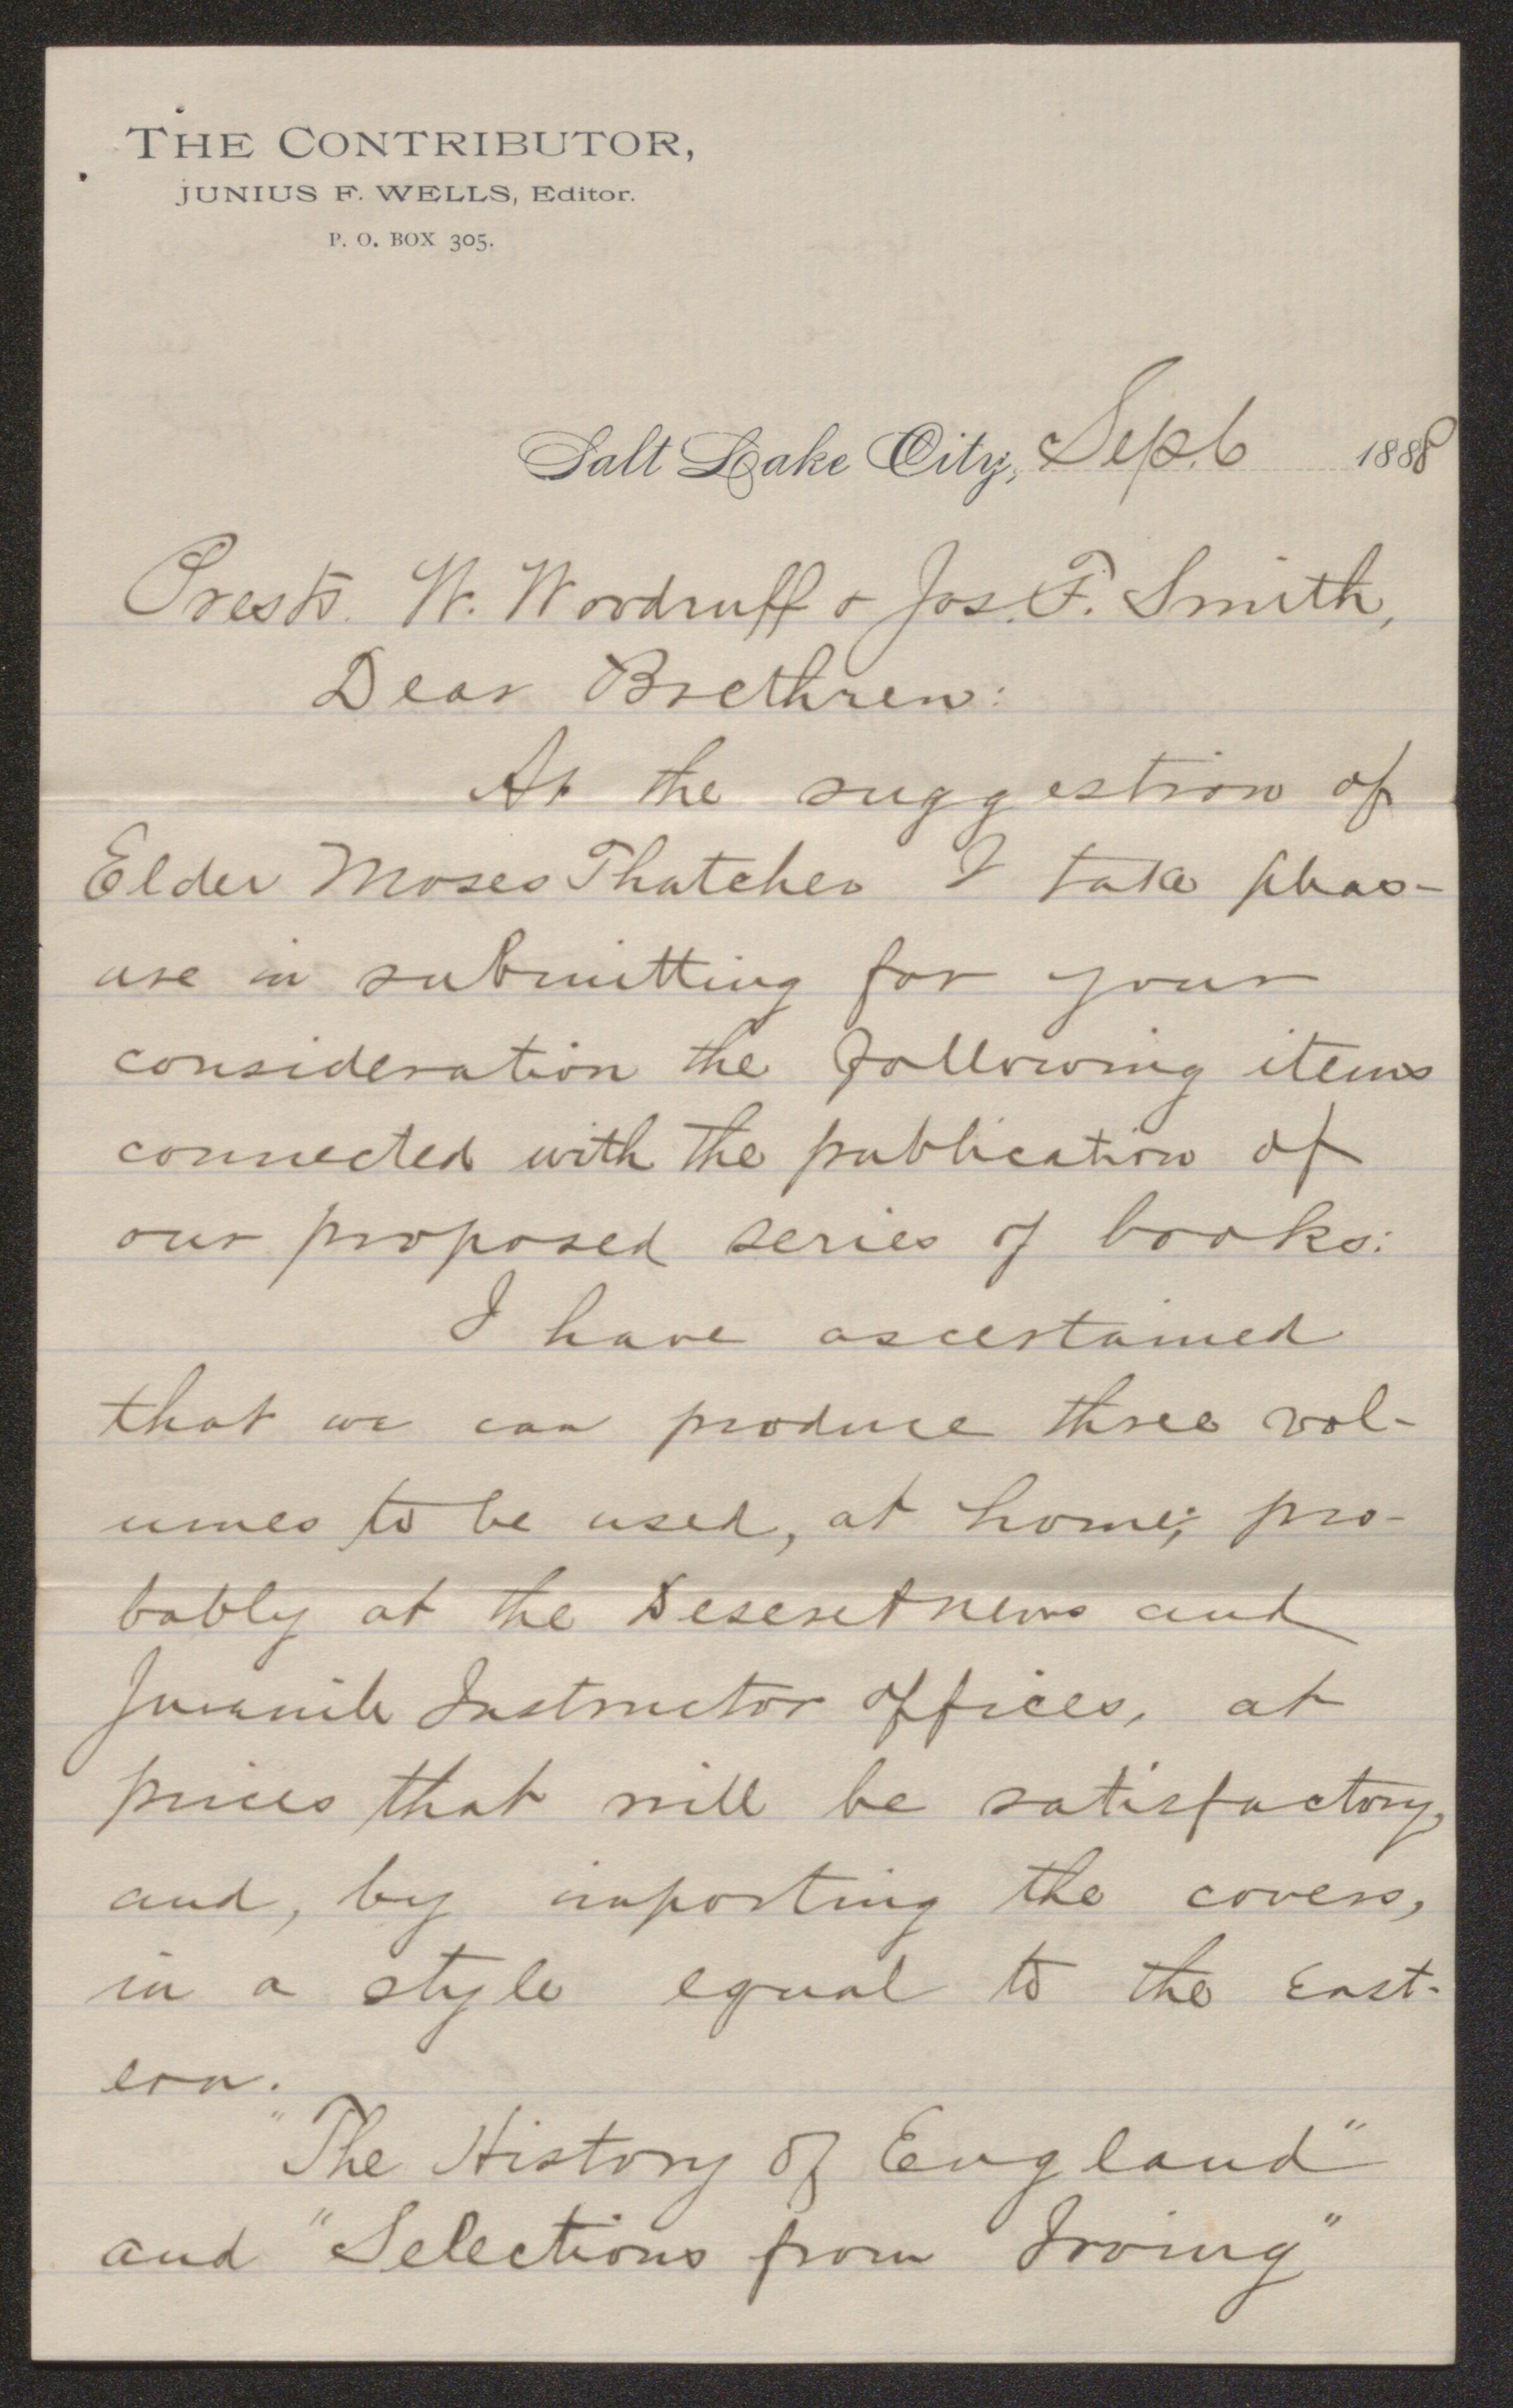 THE CONTRIBUTOR,
JUNIUS F. WELLS, Editor.
P. O. BOX 305.
Salt Lake City, Sep. 6 1888
Prests. W. Woodruff & Jos. F. Smith,
Dear Brethren:
At the suggestion of
Elder Moses Thatcher I take pleas-
ure in submitting for your
consideration the following items
connected with the publication of
our proposed series of books:
I have ascertained
that we can produce three vol-
umes to be used, at home; pro-
bably at the Deseret News and
Juvenile Instructor offices, at
prices that will be satisfactory,
and, by importing the covers,
in a style equal to the East-
ern.
"The History of England"
and "Selections from Irving"